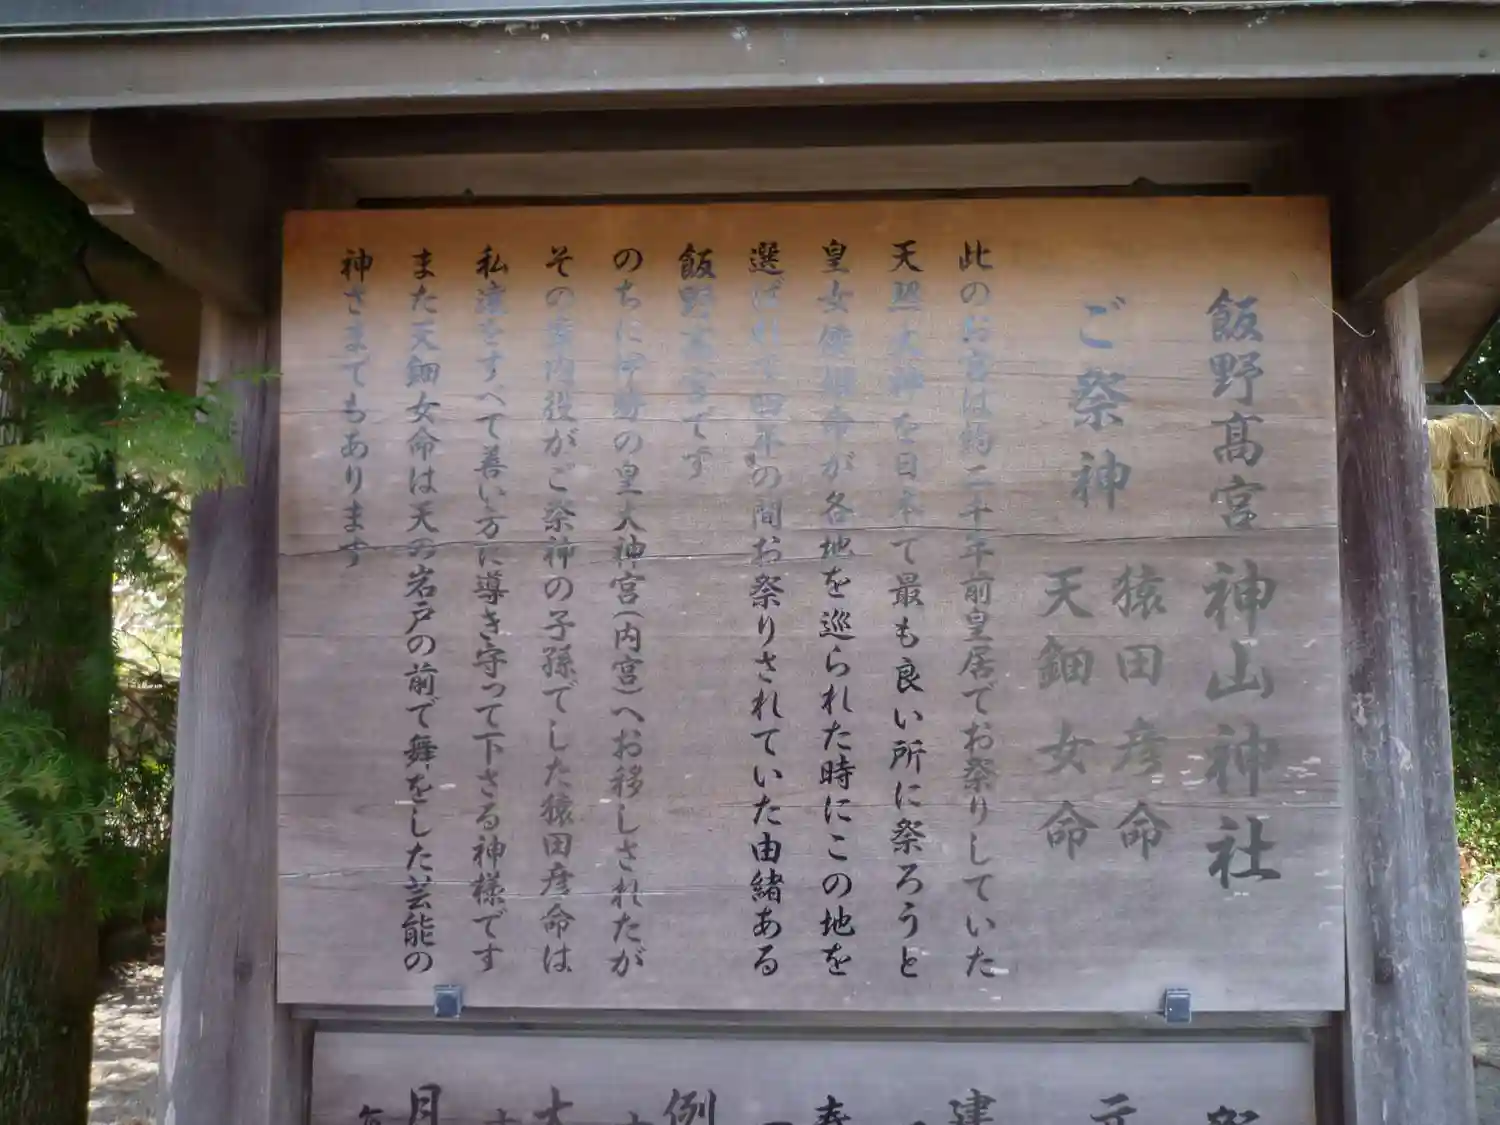 飯野髙宮 神山神社
ご祭神 猿田彦命
天鈿女命
此のお宮は約二千年前皇居でお祭りしていた
天照大神を日本で最も良い所に祭ろうと
皇女倭姫命が各地を巡られた時にこの地を
選ばれて四年の間お祭りされていた由緒ある
飯野高宮てす
のちに伊勢の皇大神宮(内宮)へお移しされたが
その案内役がご祭神の子孫でした猿田彦命は
私達をすべて善い方に導き守って下さる神様です
また天鈿女命は天の岩戸の前で舞をした芸能の
神さまでもあります
元
建
春
例
大
月